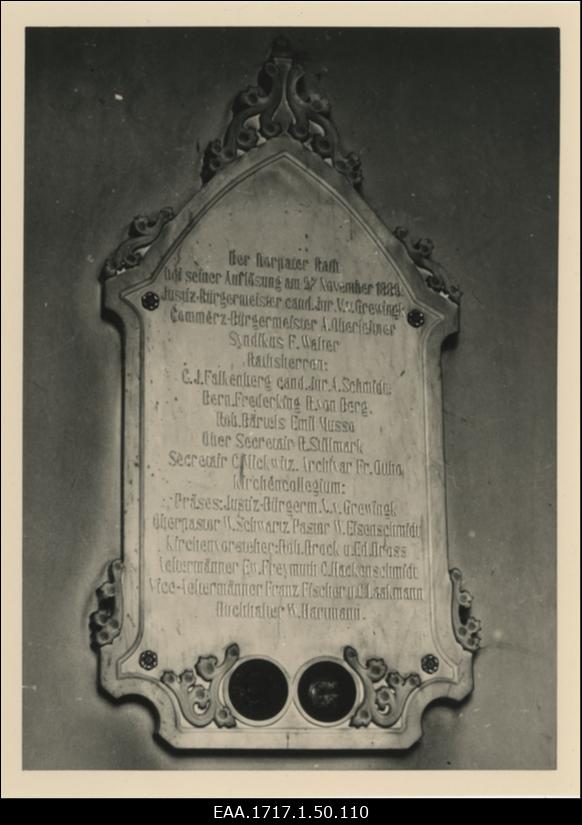 Der Dorpater Rath
bei seiner Auflösung am 27 November 1889.
Justiz-Bürgermeister cand. jur. V. v. Grewingk
Commerz-Bürgermeister A. Oberleitner
Syndikus F. Walter
Rathsherren:
C. J. Falkenberg cand. jur. A. Schmidt.
Bern. Frederking R. von Berg.
Rob. Bartels Emil Musso
Ober Secretair R. Stillmark
Secretair Archivar Fr.
Kirchencollegium:
Präses: Justiz-Bürgerm. V. v. Grewingk
Oberpastor W. Schwartz Pastor W. Eisenschmidt
Kirchenvorsteher: Rob. Brock u. Ed. Bross
Ed. Freymuth C. Hackenschmidt
Franz Fischer u. C. Laakmann
Buchhalter W. Hartmann.
EAA.1717.1.50.110